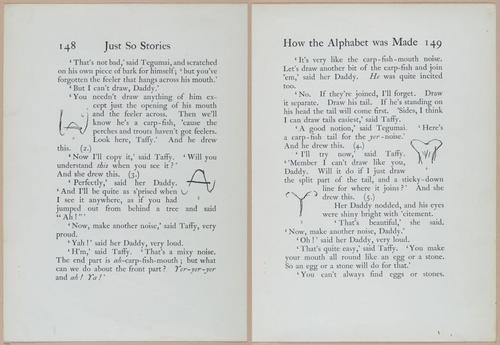 148 Just So Stories
‘That's not bad,’ said Tegumai, and scratched
on his own piece of bark for himself; ‘but you've
forgotten the feeler that hangs across his mouth.’
‘But I can't draw, Daddy.’
‘You needn't draw anything of him ex-
cept just the opening of his mouth
and the feeler across. Then we'll
know he's a carp-fish, 'cause the
perches and trouts haven't got feelers.
Look here, Taffy.’ And he drew
this. (2.)
‘Now I'll copy it,’ said Taffy. ‘Will you
understand this when you see it?’
And she drew this. (3.)
‘Perfectly,’ said her Daddy.
‘And I'll be quite as s'prised when
I see it anywhere, as if you had
jumped out from behind a tree and said
“Ah!”’
‘Now, make another noise,’ said Taffy, very
proud.
‘Yah!’ said her Daddy, very loud.
‘H'm,’ said Taffy. ‘That's a mixy noise.
The end part is ah-carp-fish-mouth; but what
can we do about the front part? Yer-yer-yer
and ah! Ya!’
How the Alphabet was Made 149
‘It's very like the carp-fish-mouth noise.
Let's draw another bit of the carp-fish and join
'em,’ said her Daddy. He was quite incited
too.
‘No. If they're joined, I'll forget. Draw
it separate. Draw his tail. If he's standing on
his head the tail will come first. 'Sides, I think
I can draw tails easiest,’ said Taffy.
‘A good notion,’ said Tegumai. ‘Here's
a carp-fish tail for the yer-noise.’
And he drew this. (4.)
‘I'll try now,’ said Taffy.
‘'Member I can't draw like you,
Daddy. Will it do if I just draw
the split part of the tail, and a sticky-down
line for where it joins?’ And she
drew this. (5.)
Her Daddy nodded, and his eyes
were shiny bright with 'citement.
‘That's beautiful,’ she said.
‘Now, make another noise, Daddy.’
‘Oh!’ said her Daddy, very loud.
‘That's quite easy,’ said Taffy. ‘You make
your mouth all round like an egg or a stone.
So an egg or a stone will do for that.’
‘You can't always find eggs or stones.